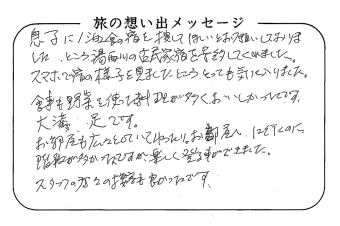 旅の想い出メッセージ
息子に1泊の宿を探してほしいとお願いしておりま
した。ところ湯西川の古民家宿を予約してくれました。
スマホで宿の様子を見ましたところとっても気に入りました。
食事も野菜を使った料理が多くおいしかったです。
大満足です。
お部屋も広々としていてゆったり。お部屋へ行くのに
階段が多かったですが楽しく登る事ができました。
スタッフの方々の接客も良かったです。